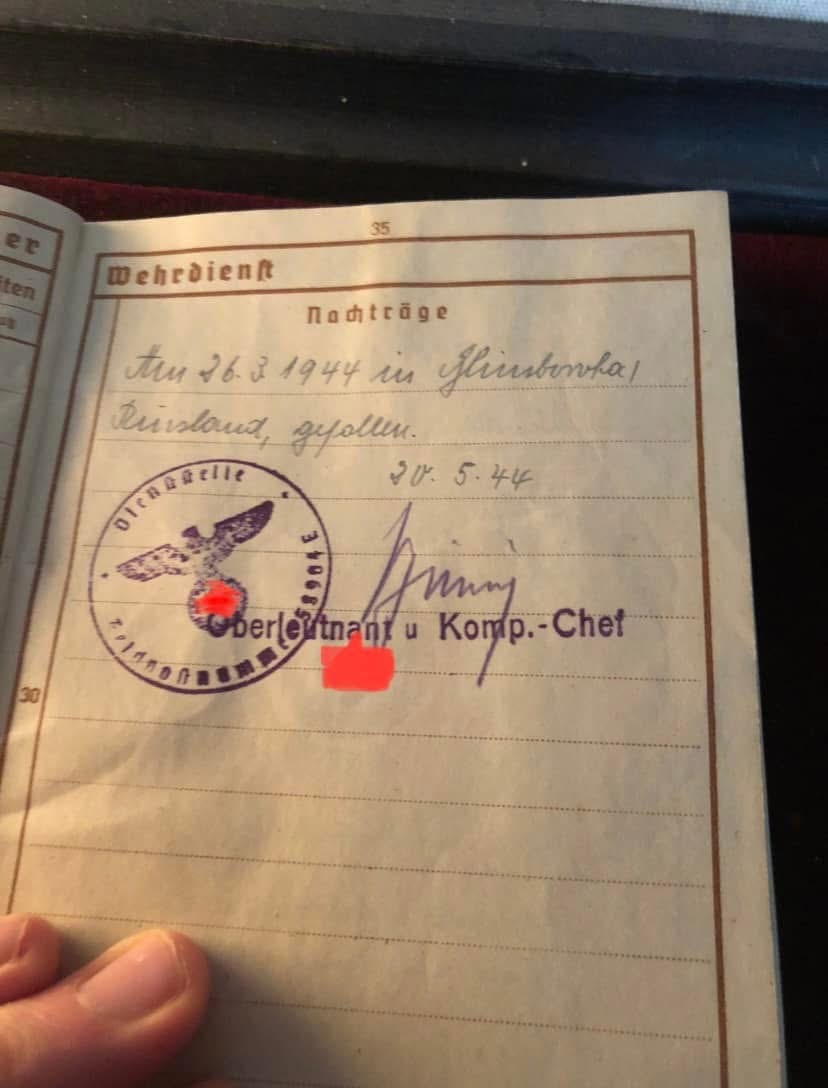 35
er
iten
Wehrdienst
Nachträge
Am 26.3.1944 in
Russland, gefallen.
20. 5. 44
Dienststelle
Feldpostnummer 58904 E
Oberleutnant u Komp.-Chef
30